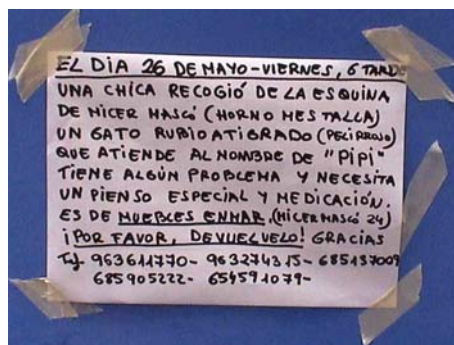 EL DÍA 26 DE MAYO-VIERNES, 6 TARDE
UNA CHICA RECOGIÓ DE LA ESQUINA
DE MICER MASCÓ (HORNO MESTALLA)
UN GATO RUBIO ATIGRADO (PELIRROJO)
QUE ATIENDE AL NOMBRE DE "PIPI"
TIENE ALGÚN PROBLEMA Y NECESITA
UN PIENSO ESPECIAL Y MEDICACIÓN.
ES DE MUEBLES ENMAR. (MICER MASCÓ 24)
¡POR FAVOR, DEVUELVELO! GRACIAS
Tf. 963611770- 963274315- 685137009
685905222- 654591079-